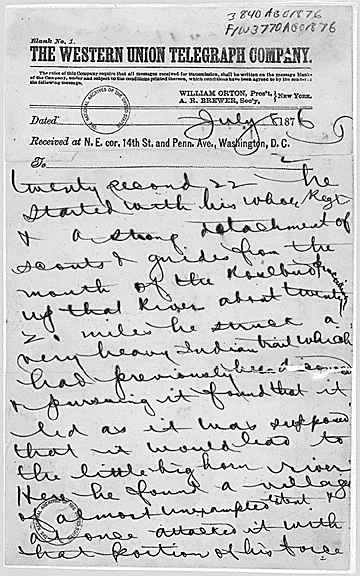 3840 AGO 1876
F/W 3770 AGO 1876
Blank No. 1.
THE WESTERN UNION TELEGRAPH COMPANY.
The rules of this Company require that all messages received for transmission, shall be written on the message blanks
of the Company, under and subject to the conditions printed thereon, which conditions have been agreed to by the sender of
the following message.
WILLIAM ORTON, Pres't,
A. R. BREWER, Sec'y, } New York.
Dated July 8 1876
Received at N. E. cor. 14th St. and Penn. Ave., Washington, D. C.
To
twenty second 22 — he
started with his whole Regt
& a strong detachment of
scouts & guides from the
mouth of the Rosebud proceeding
up that River about twenty
20 miles he struck a
very heavy Indian trail which
had previously been discovered
& pursuing it found that it
led as it was supposed
that it would lead to
the little big horn river
Here he found a village
of almost unexampled extent &
at once attacked it with
that portion of his force